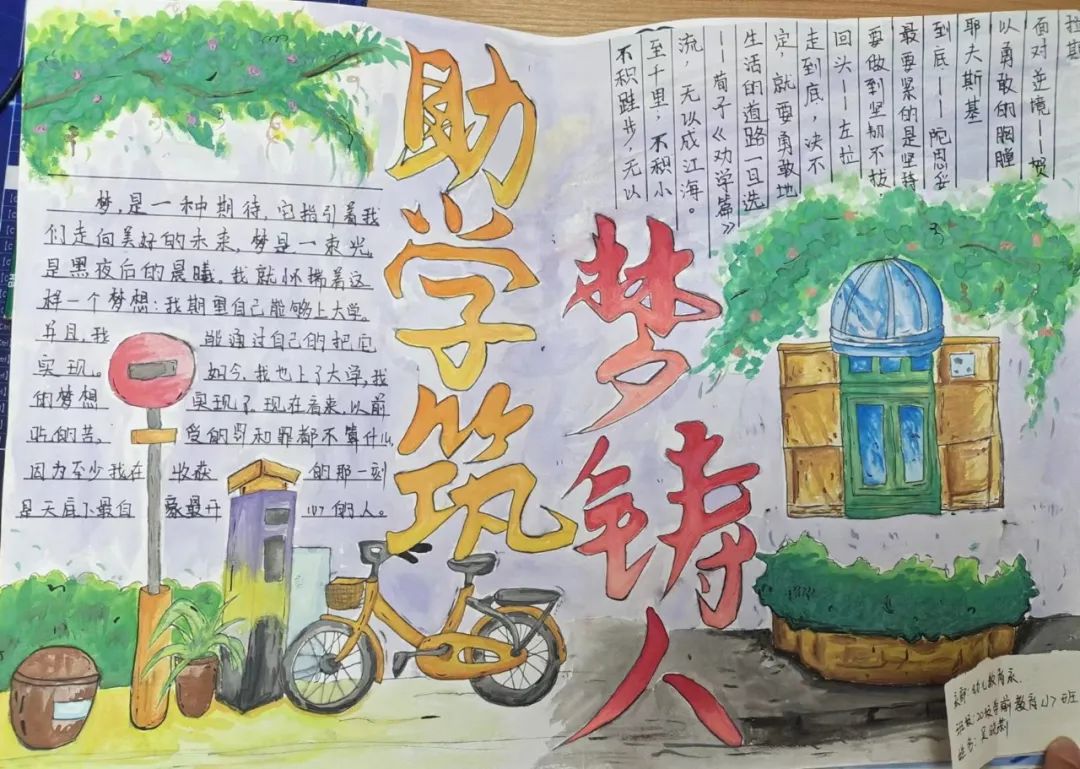 助学筑
梦铸人
梦,是一种期待,它指引着我
们走向美好的未来,梦是一束光
是黑夜后的晨曦。我就怀揣着这
样一个梦想:我期望自己能够上大学。
并且,我 能通过自己的把它
实现。 如今,我也上了大学,我
的梦想 实现了,现在看来,以前
吃的苦。 受的 和罪都不算什么,
因为至少我在 收获 的那一刻
是天底下最自 豪最开 心的人。
不积跬步,无以
至千里,不积小
流,无以成江海。
——荀子《劝学篇》
生活的道路一旦选
定,就要勇敢地
走到底,决不
回头——左拉
要做到坚韧不拔
最要紧的是坚持
到底——陀思妥
耶夫斯基
以勇敢的胸膛
面对逆境——贺
拉斯
系部:幼儿教育系.
班级:20级学前教育 班
姓名: